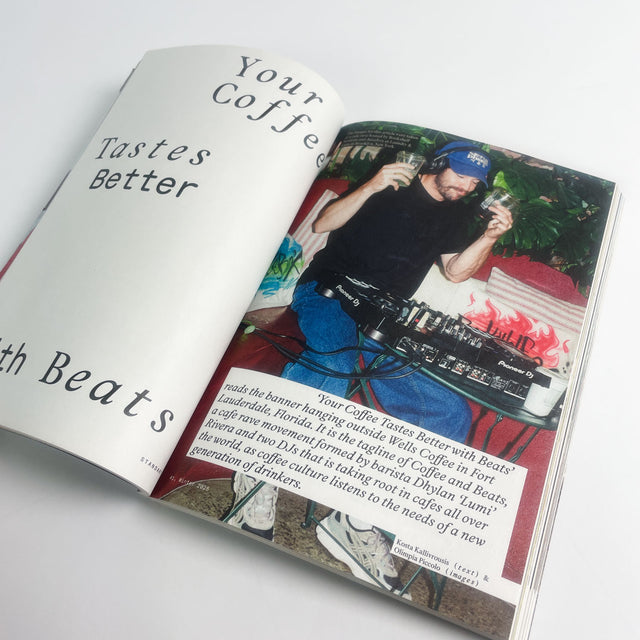 Your
Coffee
Tastes
Better
ith Beats
Pioneer Dj
Pioneer Dj
'Your Coffee Tastes Better with Beats'
reads the banner hanging outside Wells Coffee in Fort
Lauderdale, Florida. It is the tagline of Coffee and Beats,
a cafe rave movement formed by barista Dhylan 'Lumi'
Rivera and two DJs that is taking root in cafes all over
the world, as coffee culture listens to the needs of a new
generation of drinkers.
Kosta Kallivrousis (text) &
Olimpia Piccolo (images)